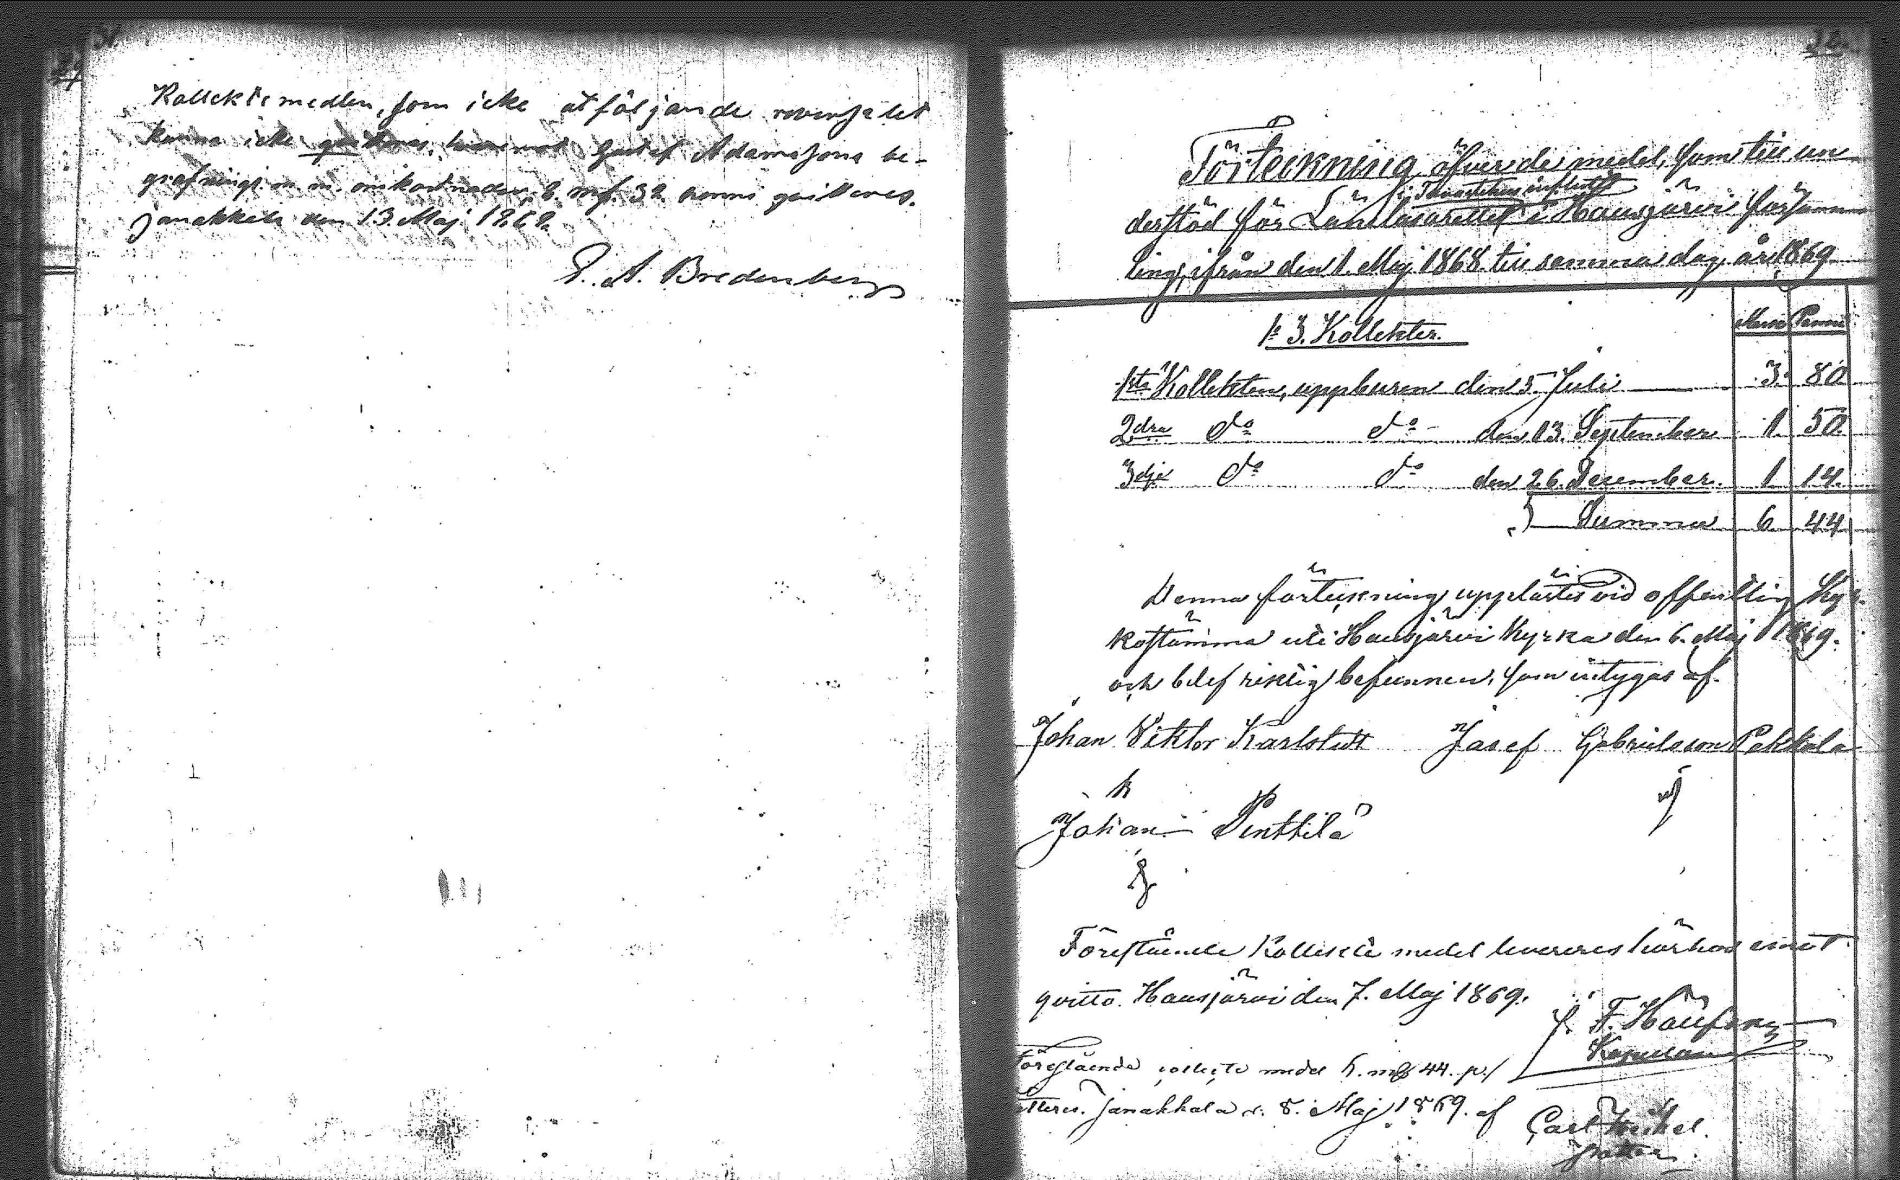 Kollekte medlen, som icke åtföljande
kunna icke hvaremot Gustaf Adamssons be-
grafnings m. m. omkostnader, 8 mk. 32 penni quitteres.
Janakkala den 13 Maj 1868.
E. A. Bredenberg
32.
Förteckning öfver de medel, som till un
i Tavastehus
derstöd för Länslasarettet i Hausjärvi försam
ling, ifrån den 1. Maj 1868 till samma dag år 1869
3. Kollekter.
Mark Penni
1sta Kollekten, uppburen den 5. Juli 3. 80
2dra do do den 13. September 1. 50
3dje do do den 26. December 1. 14.
Summa 6. 44
Denna förteckning upplästes vid offentlig Kyr
kostämma uti Hausjärvi Kyrka den 6. Maj 1869.
och blef riktig befunnen, som intygas af.
Johan Viktor Karlstedt Josef Gabrielsson Pekkala
Johan Penttilä
Förestående Kollekte medel levereres härhos emot
qvitto. Hausjärvi den 7. Maj 1869.
Kapellan
Förestående collecte medel 6. mk 44. p:i
tteres. Janakkala d. 8. Maj 1869. af
Carl